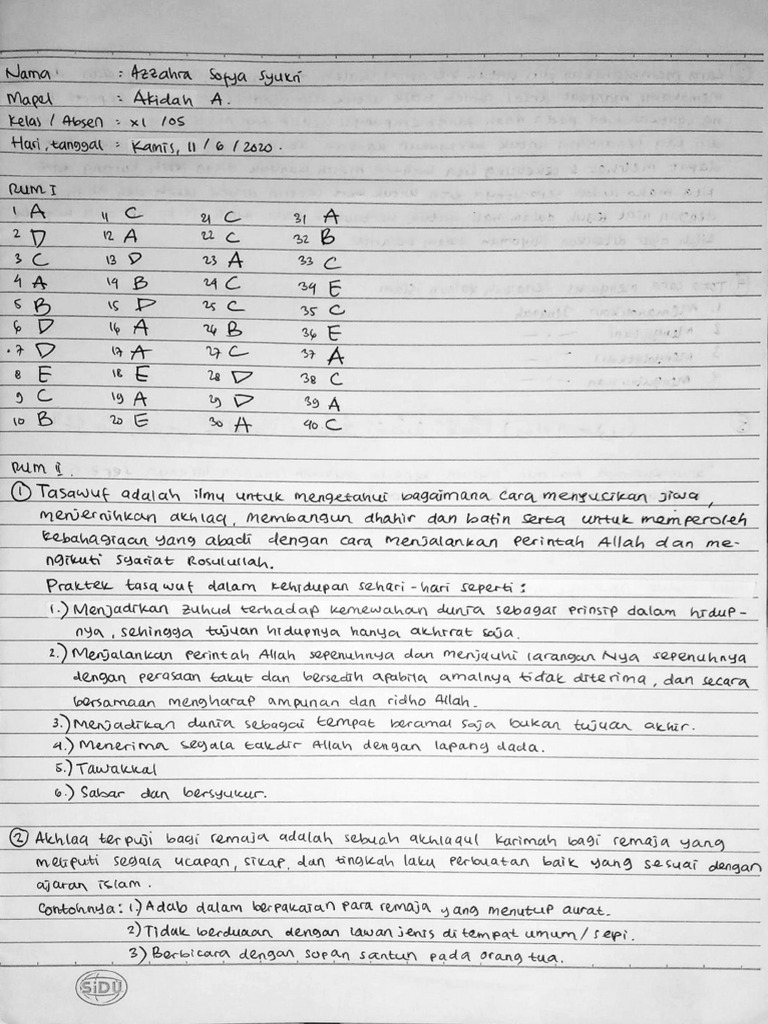 Nama : Azzahra Sofya Syukri
Mapel : Akidah A.
Kelas / Absen : XI / 05
Hari, tanggal : Kamis, 11 / 6 / 2020.
RUM I
1 A 11 C 21 C 31 A
2 D 12 A 22 C 32 B
3 C 13 D 23 A 33 C
4 A 14 B 24 C 34 E
5 B 15 D 25 C 35 C
6 D 16 A 26 B 36 E
7 D 17 A 27 C 37 A
8 E 18 E 28 D 38 C
9 C 19 A 29 D 39 A
10 B 20 E 30 A 40 C
RUM II.
① Tasawuf adalah ilmu untuk mengetahui bagaimana cara menyucikan jiwa,
menjernihkan akhlaq, membangun dhahir dan batin serta untuk memperoleh
kebahagiaan yang abadi dengan cara menjalankan perintah Allah dan me-
ngikuti syariat Rosulullah.
Praktek tasawuf dalam kehidupan sehari-hari seperti :
1.) Menjadikan zuhud terhadap kemewahan dunia sebagai prinsip dalam hidup-
nya, sehingga tujuan hidupnya hanya akhirat saja.
2.) Menjalankan perintah Allah sepenuhnya dan menjauhi larangan Nya sepenuhnya
dengan perasaan takut dan bersedih apabila amalnya tidak diterima, dan secara
bersamaan mengharap ampunan dan ridho Allah.
3.) Menjadikan dunia sebagai tempat beramal saja bukan tujuan akhir.
4.) Menerima segala takdir Allah dengan lapang dada.
5.) Tawakkal
6.) Sabar dan bersyukur.
② Akhlaq terpuji bagi remaja adalah sebuah akhlaqul karimah bagi remaja yang
meliputi segala ucapan, sikap, dan tingkah laku perbuatan baik yang sesuai dengan
ajaran islam.
Contohnya : 1) Adab dalam berpakaian para remaja yang menutup aurat.
2) Tidak berduaan dengan lawan jenis di tempat umum / sepi.
3) Berbicara dengan sopan santun pada orang tua.
SiDU